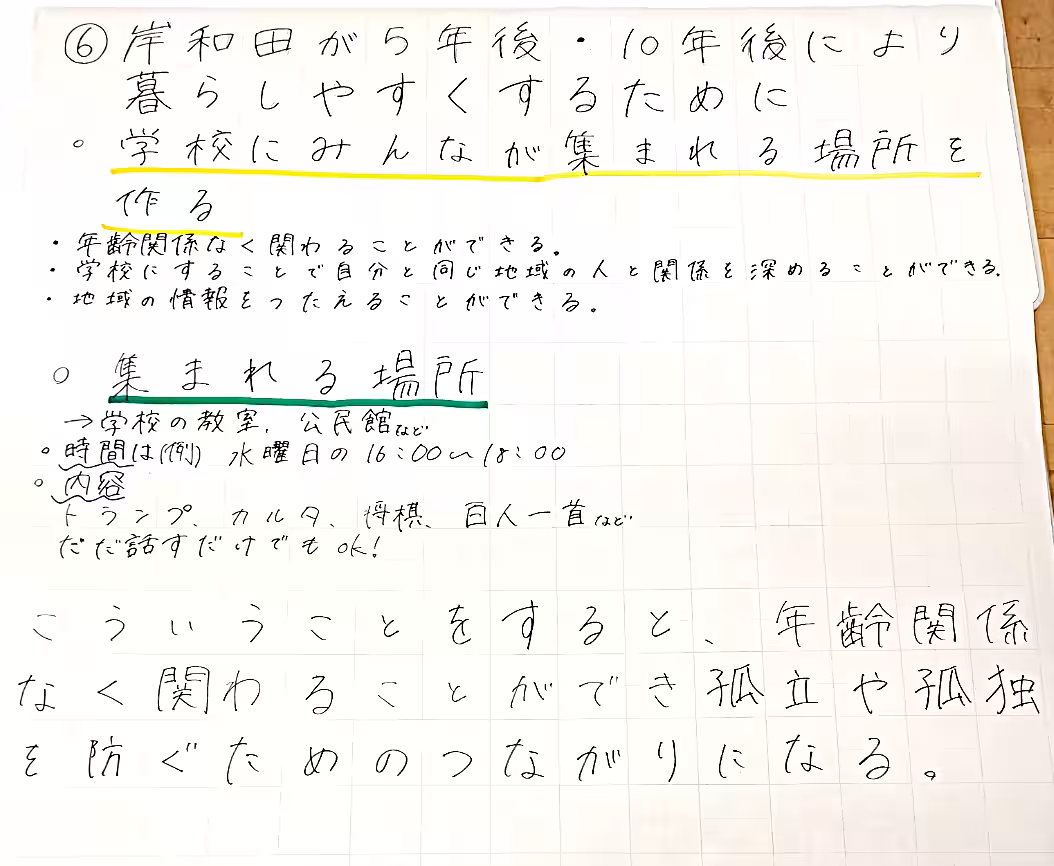 ⑥岸和田が5年後・10年後により
暮らしやすくするために
○ 学校にみんなが集まれる場所を
作る
・年齢関係なく関わることができる。
・学校にすることで自分と同じ地域の人と関係を深めることができる。
・地域の情報をつたえることができる。
○ 集まれる場所
→学校の教室、公民館など
○時間は(例) 水曜日の16:00〜18:00
○内容
トランプ、カルタ、将棋、百人一首など
ただ話すだけでもOK!
こういうことをすると、年齢関係
なく関わることができ孤立や孤独
を防ぐためのつながりになる。